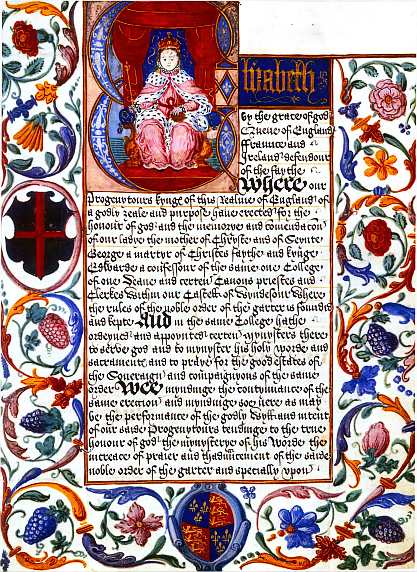 Elizabeth
by the grace of god
Quene of England
Fraunce and
Ireland defendour
of the faythe
Where our
Progenytours kynge of this Realme of England of
a godly zeale and purpose have erected for the
honour of god and the memorye and comendacon
of our ladye the mother of Chryste and of Seynte
George a martyr of Christes faythe and kynge
Edwarde a confessour of the same one College
of one Deane and certen Canons priestes and
Clerkes within our Castell of Wyndesour where
the rules of the noble order of the garter is founded
and kepte And in the same College hathe
ordeyned and appoynted certen mynysters there
to serve god and to mynyster his holy worde and
sacrament and to praye for the good estates of
the Soveraign and companyons of the same
order Wee myndinge the contynuance of the
same erection and myndinge soe here as may
be the performance of the godly Wyll and intent
of our saide Progenytours tendinge to the true
honour of god the mynysterye of his Worde the
increace of praier and thadvancement of the saide
noble order of the garter and specially upon